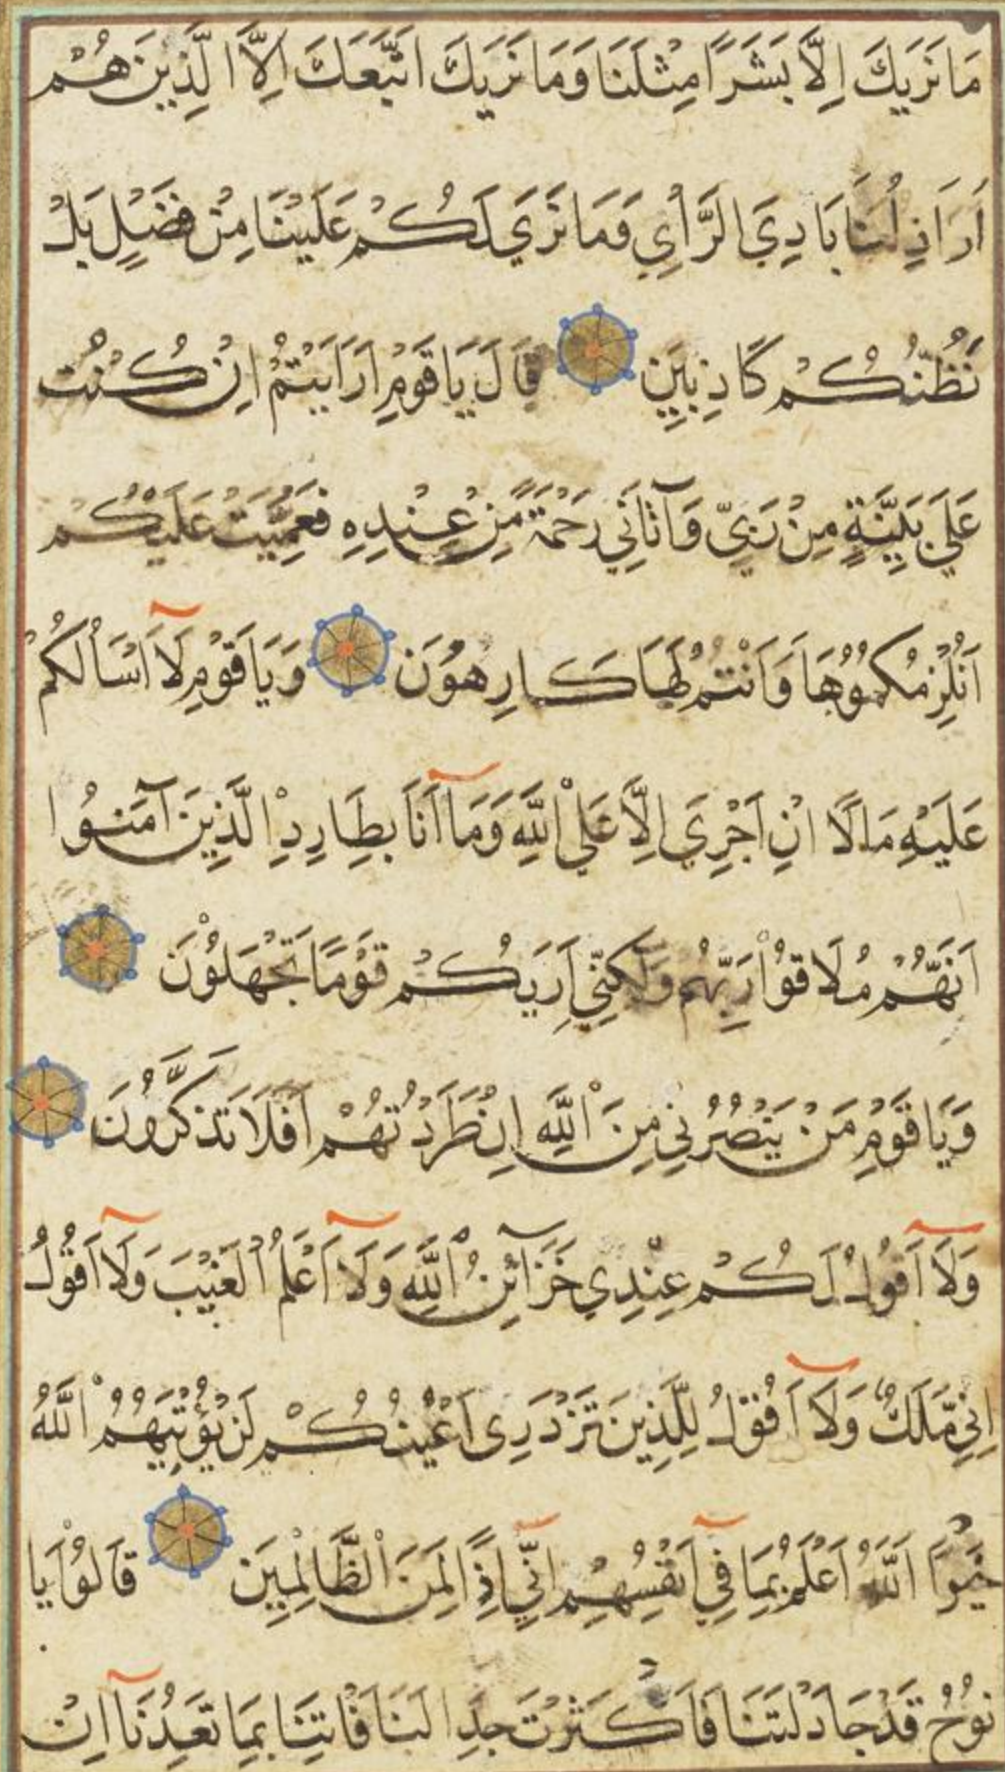 مَا نَرَيكَ اِلَّا بَشَرًا مِثْلَنَا وَمَا نَرَيكَ اتَّبَعَكَ اِلَّا الَّذِينَ هُمْ
اَرَاذِلُنَا بَادِيَ الرَّاْيِ وَمَا نَرَي لَكُمْ عَلَيْنَا مِنْ فَضْلٍ بَلْ
نَظُنُّكُمْ كَاذِبِينَ قَالَ يَا قَوْمِ اَرَاَيْتُمْ اِنْ كُنْتُ
عَلَي بَيِّنَةٍ مِنْ رَبِّي وَآتَانِي رَحْمَةً مِنْ عِنْدِهِ فَعُمِّيَتْ عَلَيْكُمْ
اَنُلْزِمُكُمُوُهَا وَاَنْتُمْ لَهَا كَارِهُوُنَ وَيَا قَوْمِ لَآ اَسْاَلُكُمْ
عَلَيْهِ مَالًا اِنْ اَجْرِيَ اِلَّا عَلَي اللَّهِ وَمَآ اَنَا بِطَارِدِ الَّذِينَ آمَنُوا
اِنَّهُمْ مُلَاقُوْا رَبِّهِمْ وَلَكِنِّي اَرَيكُمْ قَوْمًا تَجْهَلُوْنَ
وَيَا قَوْمِ مَنْ يَنْصُرُنِي مِنَ اللَّهِ اِنْ طَرَدْتُهُمْ اَفَلَا تَذَكَّرُونَ
وَلَآ اَقُولُ لَكُمْ عِنْدِي خَزَآئِنُ اللَّهِ وَلَآ اَعْلَمُ الْغَيْبَ وَلَآ اَقُولُ
اِنِّي مَلَكٌ وَلَآ اَقُولُ لِلَّذِينَ تَزْدَرِي اَعْيُنُكُمْ لَنْ يُؤْتِيَهُمُ اللَّهُ
خَيْرًا اَللَّهُ اَعْلَمُ بِمَا فِي اَنْفُسِهِمْ اِنِّي اِذًا لَمِنَ الظَّالِمِينَ قَالُوْا يَا
نُوحُ قَدْ جَادَلْتَنَا فَاَكْثَرْتَ جِدَالَنَا فَاْتِنَا بِمَا تَعِدُنَآ اِنْ